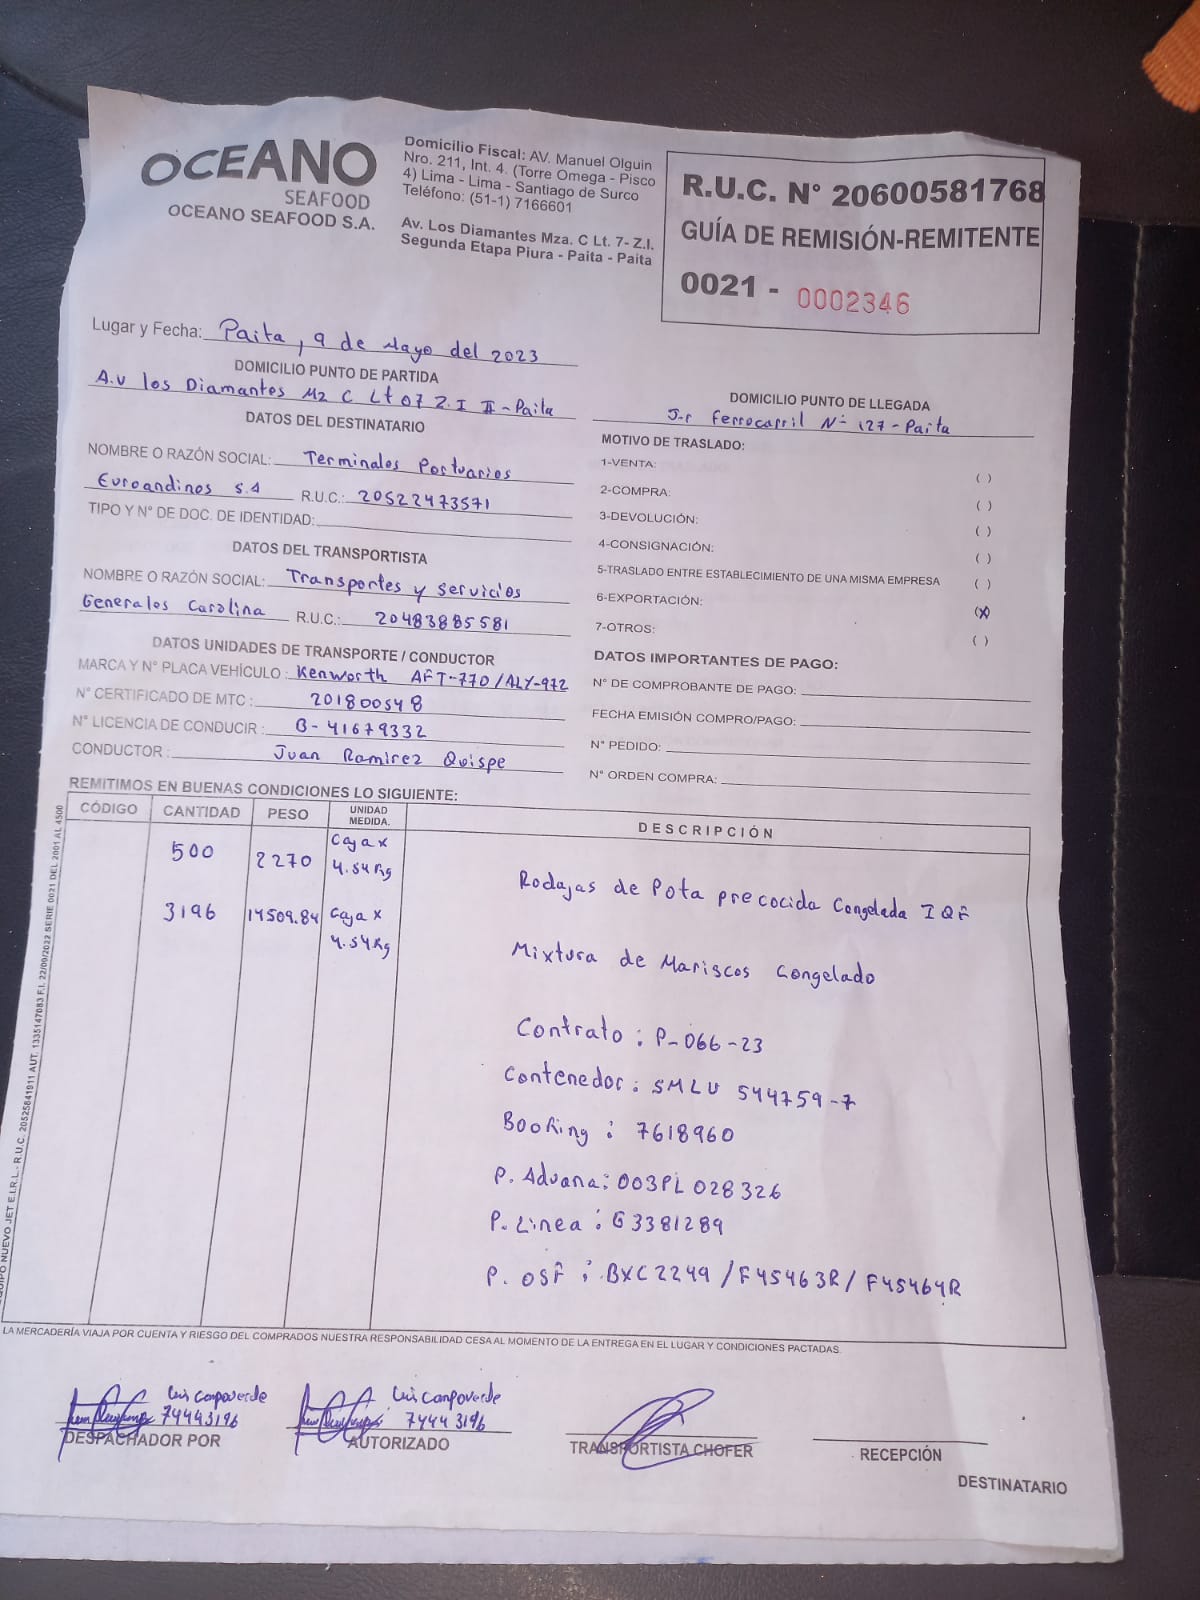 OCEANO
SEAFOOD
OCEANO SEAFOOD S.A.
Domicilio Fiscal: AV. Manuel Olguin
Nro. 211, Int. 4. (Torre Omega - Pisco
4) Lima - Lima - Santiago de Surco
Teléfono: (51-1) 7166601
Av. Los Diamantes Mza. C Lt. 7- Z.I.
Segunda Etapa Piura - Paita - Paita
R.U.C. N° 20600581768
GUÍA DE REMISIÓN-REMITENTE
0021 - 0002346
Lugar y Fecha: Paita, 9 de Mayo del 2023
DOMICILIO PUNTO DE PARTIDA
A.v los Diamantes Mz C Lt 07 Z.I II - Paita
DATOS DEL DESTINATARIO
NOMBRE O RAZÓN SOCIAL: Terminales Portuarios
Euroandinos S.A R.U.C.: 20522473571
TIPO Y N° DE DOC. DE IDENTIDAD:
DATOS DEL TRANSPORTISTA
NOMBRE O RAZÓN SOCIAL: Transportes y servicios
Generales Carolina R.U.C.: 20483885581
DATOS UNIDADES DE TRANSPORTE / CONDUCTOR
MARCA Y N° PLACA VEHÍCULO : Kenworth AFT-770/ALY-972
N° CERTIFICADO DE MTC : 201800548
N° LICENCIA DE CONDUCIR : B-41679332
CONDUCTOR : Juan Ramirez Quispe
DOMICILIO PUNTO DE LLEGADA
J-r Ferrocarril N° 127 - Paita
MOTIVO DE TRASLADO:
1-VENTA: ( )
2-COMPRA: ( )
3-DEVOLUCIÓN: ( )
4-CONSIGNACIÓN: ( )
5-TRASLADO ENTRE ESTABLECIMIENTO DE UNA MISMA EMPRESA ( )
6-EXPORTACIÓN: (X)
7-OTROS: ( )
DATOS IMPORTANTES DE PAGO:
N° DE COMPROBANTE DE PAGO:
FECHA EMISIÓN COMPRO/PAGO:
N° PEDIDO:
N° ORDEN COMPRA:
REMITIMOS EN BUENAS CONDICIONES LO SIGUIENTE:
CÓDIGO CANTIDAD PESO UNIDAD MEDIDA. DESCRIPCIÓN
500 2270 Caja x 4.54Kg Rodajas de Pota precocida Congelada IQF
3196 14509.84 Caja x 4.54Kg Mixtura de Mariscos Congelado
Contrato : P-066-23
Contenedor : SMLU 544759-7
Booking : 7618960
P. Aduana: 003PL028326
P. Linea : G3381289
P. OSF : BXC2249 / F45463R / F45464R
EQUIPO NUEVO JET E.I.R.L.- R.U.C. 20525841911 AUT. 1335147083 F.I. 22/09/2022 SERIE 0021 DEL 2001 AL 4500
LA MERCADERÍA VIAJA POR CUENTA Y RIESGO DEL COMPRADOS NUESTRA RESPONSABILIDAD CESA AL MOMENTO DE LA ENTREGA EN EL LUGAR Y CONDICIONES PACTADAS.
Luis Campoverde
74443196
DESPACHADOR POR
Luis Campoverde
74443196
AUTORIZADO
TRANSPORTISTA CHOFER
RECEPCIÓN
DESTINATARIO